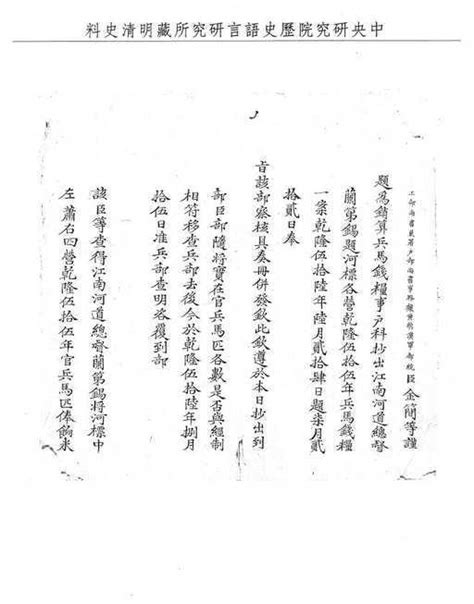 中央研究院歷史語言研究所藏明清史料
工部尚書兼署戶部尚書事務鑲黃旗漢軍都統臣金簡等謹
題為銷算兵馬錢糧事戶科抄出江南河道總督
蘭第錫題河標各營乾隆伍拾伍年兵馬錢糧
一案乾隆伍拾陸年陸月貳拾肆日題柒月貳
拾貳日奉
旨該部察核具奏冊併發欽此欽遵於本日抄出到
部臣部隨將實在官兵馬匹各數是否與經制
相符移查兵部去後今於乾隆伍拾陸年捌月
拾伍日准兵部查明咨覆到部
該臣等查得江南河道總督蘭第錫將河標中
左蕭右四營乾隆伍拾伍年官兵馬匹俸餉米